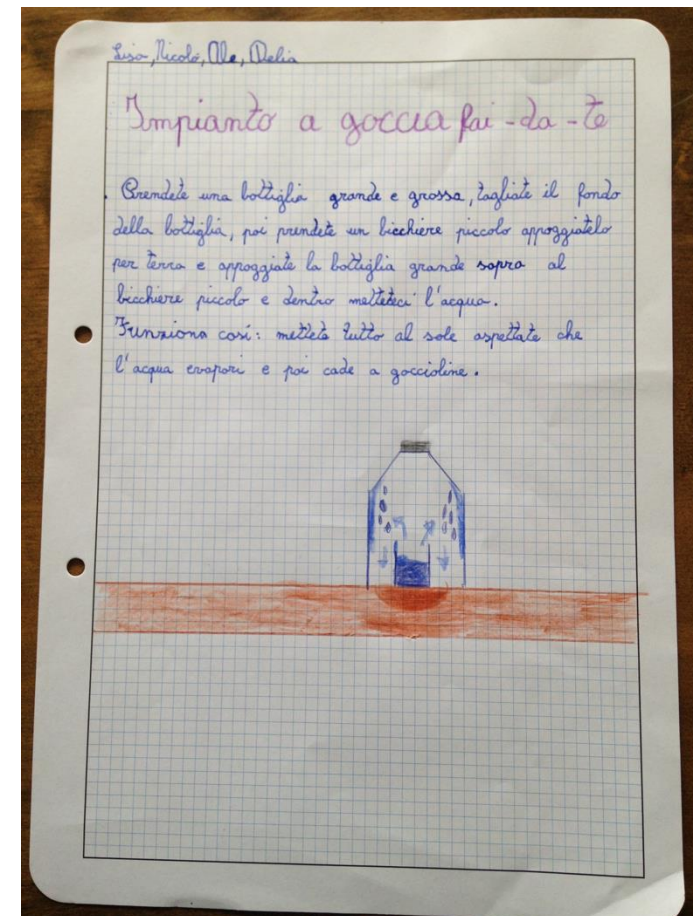 Lisa, Nicolò, Ale, Delia
Impianto a goccia fai-da-te
Prendete una bottiglia grande e grossa, tagliate il fondo
della bottiglia, poi prendete un bicchiere piccolo appoggiatelo
per terra e appoggiate la bottiglia grande sopra al
bicchiere piccolo e dentro metteteci l'acqua.
Funziona così: mettete tutto al sole aspettate che
l'acqua evapori e poi cade a goccioline.